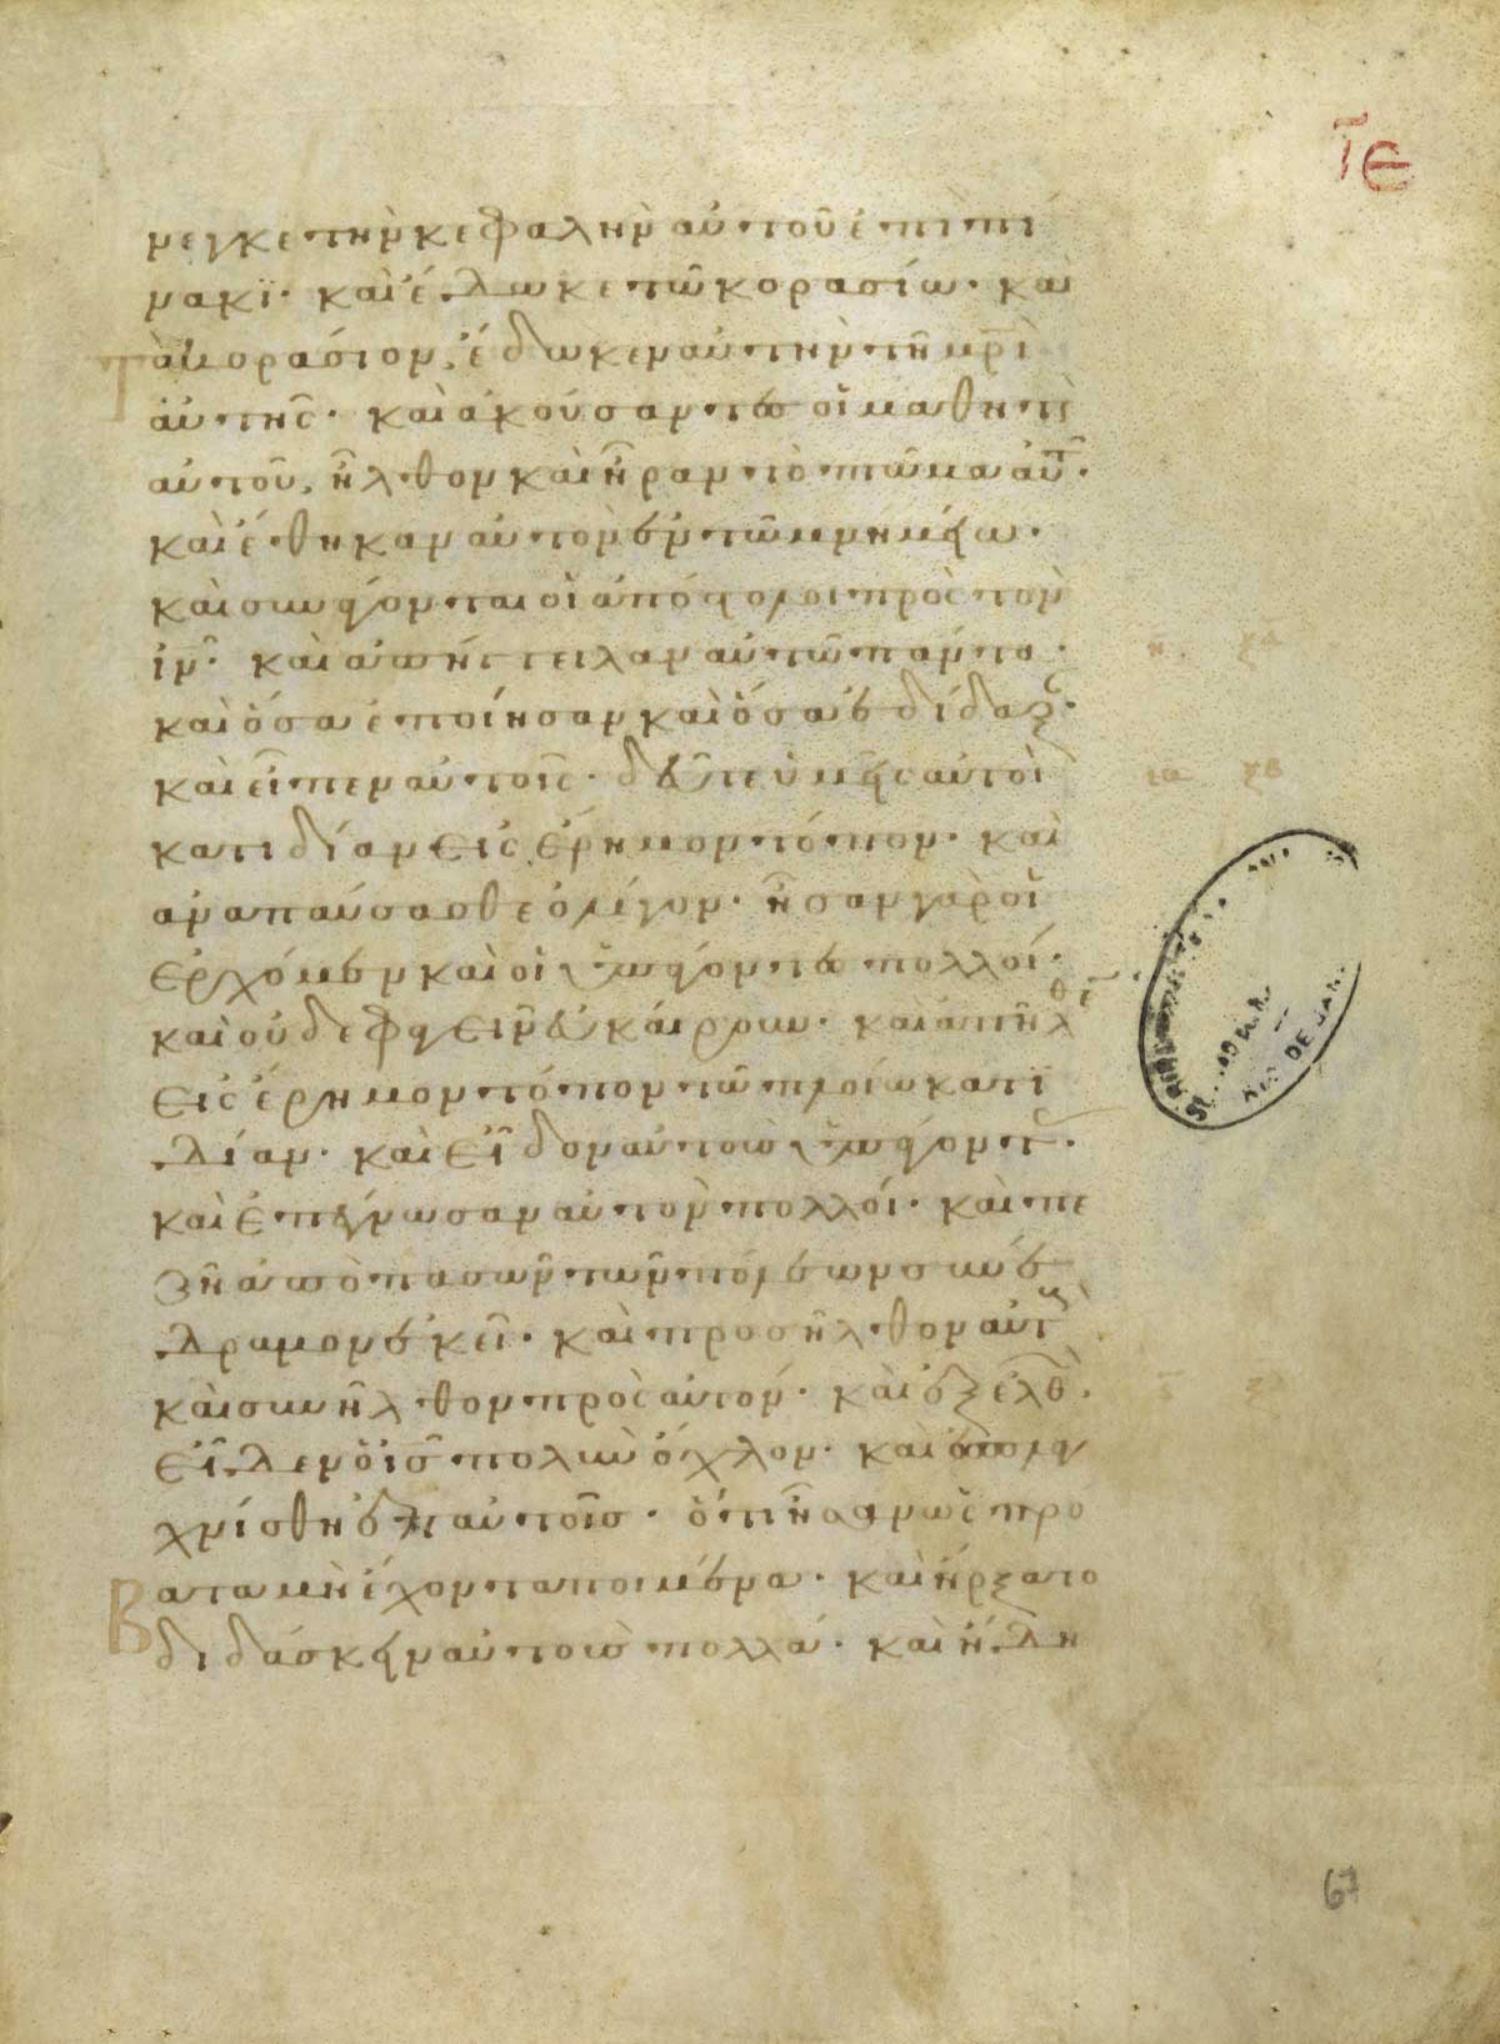 Τε
νεγκε την κεφαλὴν αὐτοῦ ἐπὶ πί
νακϊ· καὶ ἔδωκε τῶ κορασίω· καὶ
τὸ κοράσιον, ἔδωκεν αὐτὴν τῆ μρ̅ὶ
αὐτῆς· καὶ ἀκούσαντες οἱ μαθηταὶ
αὐτοῦ, ἦλθον καὶ ἦραν τὸ πτῶμα αὐτ̅·
καὶ ἔθηκαν αὐτὸν ἐν τῶ μνημείω·
καὶ συνάγονται οἱ ἀπόστολοι πρὸς τὸν
ιν̅· καὶ ἀπήγγειλαν αὐτῶ πάντα·
καὶ ὅσα ἐποίησαν καὶ ὅσα ἐδίδαξ·
καὶ εἶπεν αὐτοῖς· δεῦτε ὑμεῖς αὐτοὶ
κατιδίαν εἰς ἔρημον τόπον· καὶ
αναπαύσασθε ὀλίγον· ἦσαν γὰρ οἱ
ἐρχόμενοι καὶ οἱ ὑπάγοντες πολλοί·
καὶ οὐδὲ φαγεῖν εὐκαίρουν· καὶ ἀπῆλθεν
εἰς ἔρημον τόπον τῶ πλοίω κατϊ
δίαν· καὶ εἶδον αὐτοὺς ὑπάγοντ·
καὶ ἐπέγνωσαν αὐτὸν πολλοί· καὶ πε
ζῆ ἀπὸ πασῶν τῶν πόλεων συνέ
δραμον ἐκεῖ· καὶ προσῆλθον αὐτ
καὶ συνῆλθον πρὸς αὐτόν· καὶ ἐξελθ·
εἶδεν ὁ ισ̅ πολὺν ὄχλον· καὶ ἐσπλαγ
χνίσθη ἐπ αὐτοῖσ· ὅτι ἦσαν ὡς πρό
βατα μὴ ἔχοντα ποιμένα· καὶ ἤρξατο
διδάσκειν αὐτοὺς πολλά· καὶ ἤδη
67